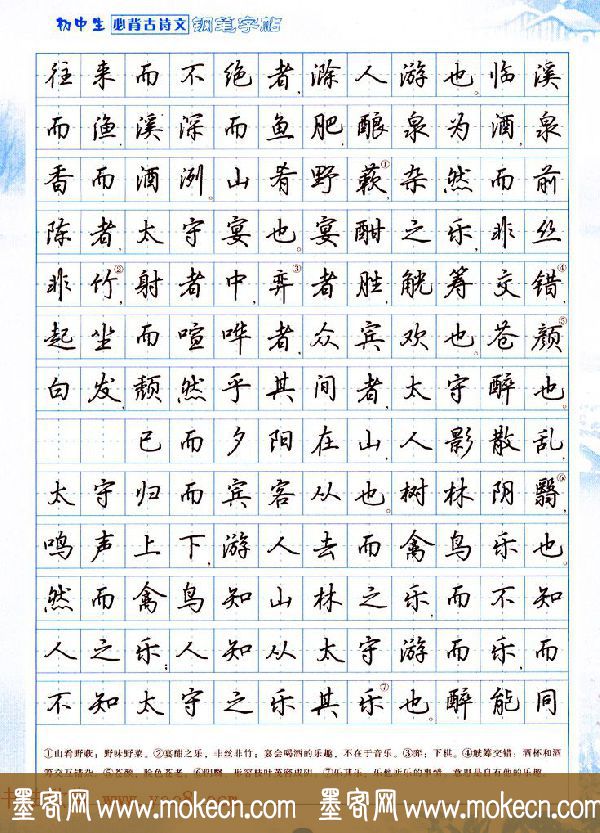 初中生 必背古诗文 钢笔字帖
往来而不绝者，滁人游也。临溪
而渔，溪深而鱼肥，酿泉为酒，泉
香而酒洌。山肴野蔌①，杂然而前
陈者，太守宴也。宴酣之乐，非丝
非竹②，射者中，弈③者胜，觥筹交错④，
起坐而喧哗者，众宾欢也。苍颜⑤
白发，颓然乎其间者，太守醉也。
已而夕阳在山，人影散乱，
太守归而宾客从也。树林阴翳⑥，
鸣声上下，游人去而禽鸟乐也。
然而禽鸟知山林之乐，而不知
人之乐；人知从太守游而乐，而
不知太守之乐其乐⑦也。醉能同
①山肴野蔌：野味野菜。②宴酣之乐，非丝非竹：宴会喝酒的乐趣，不在于音乐。③弈：下棋。④觥筹交错：酒杯和酒
墨客网 www.mokecn.com 墨客网 www.mokecn.com